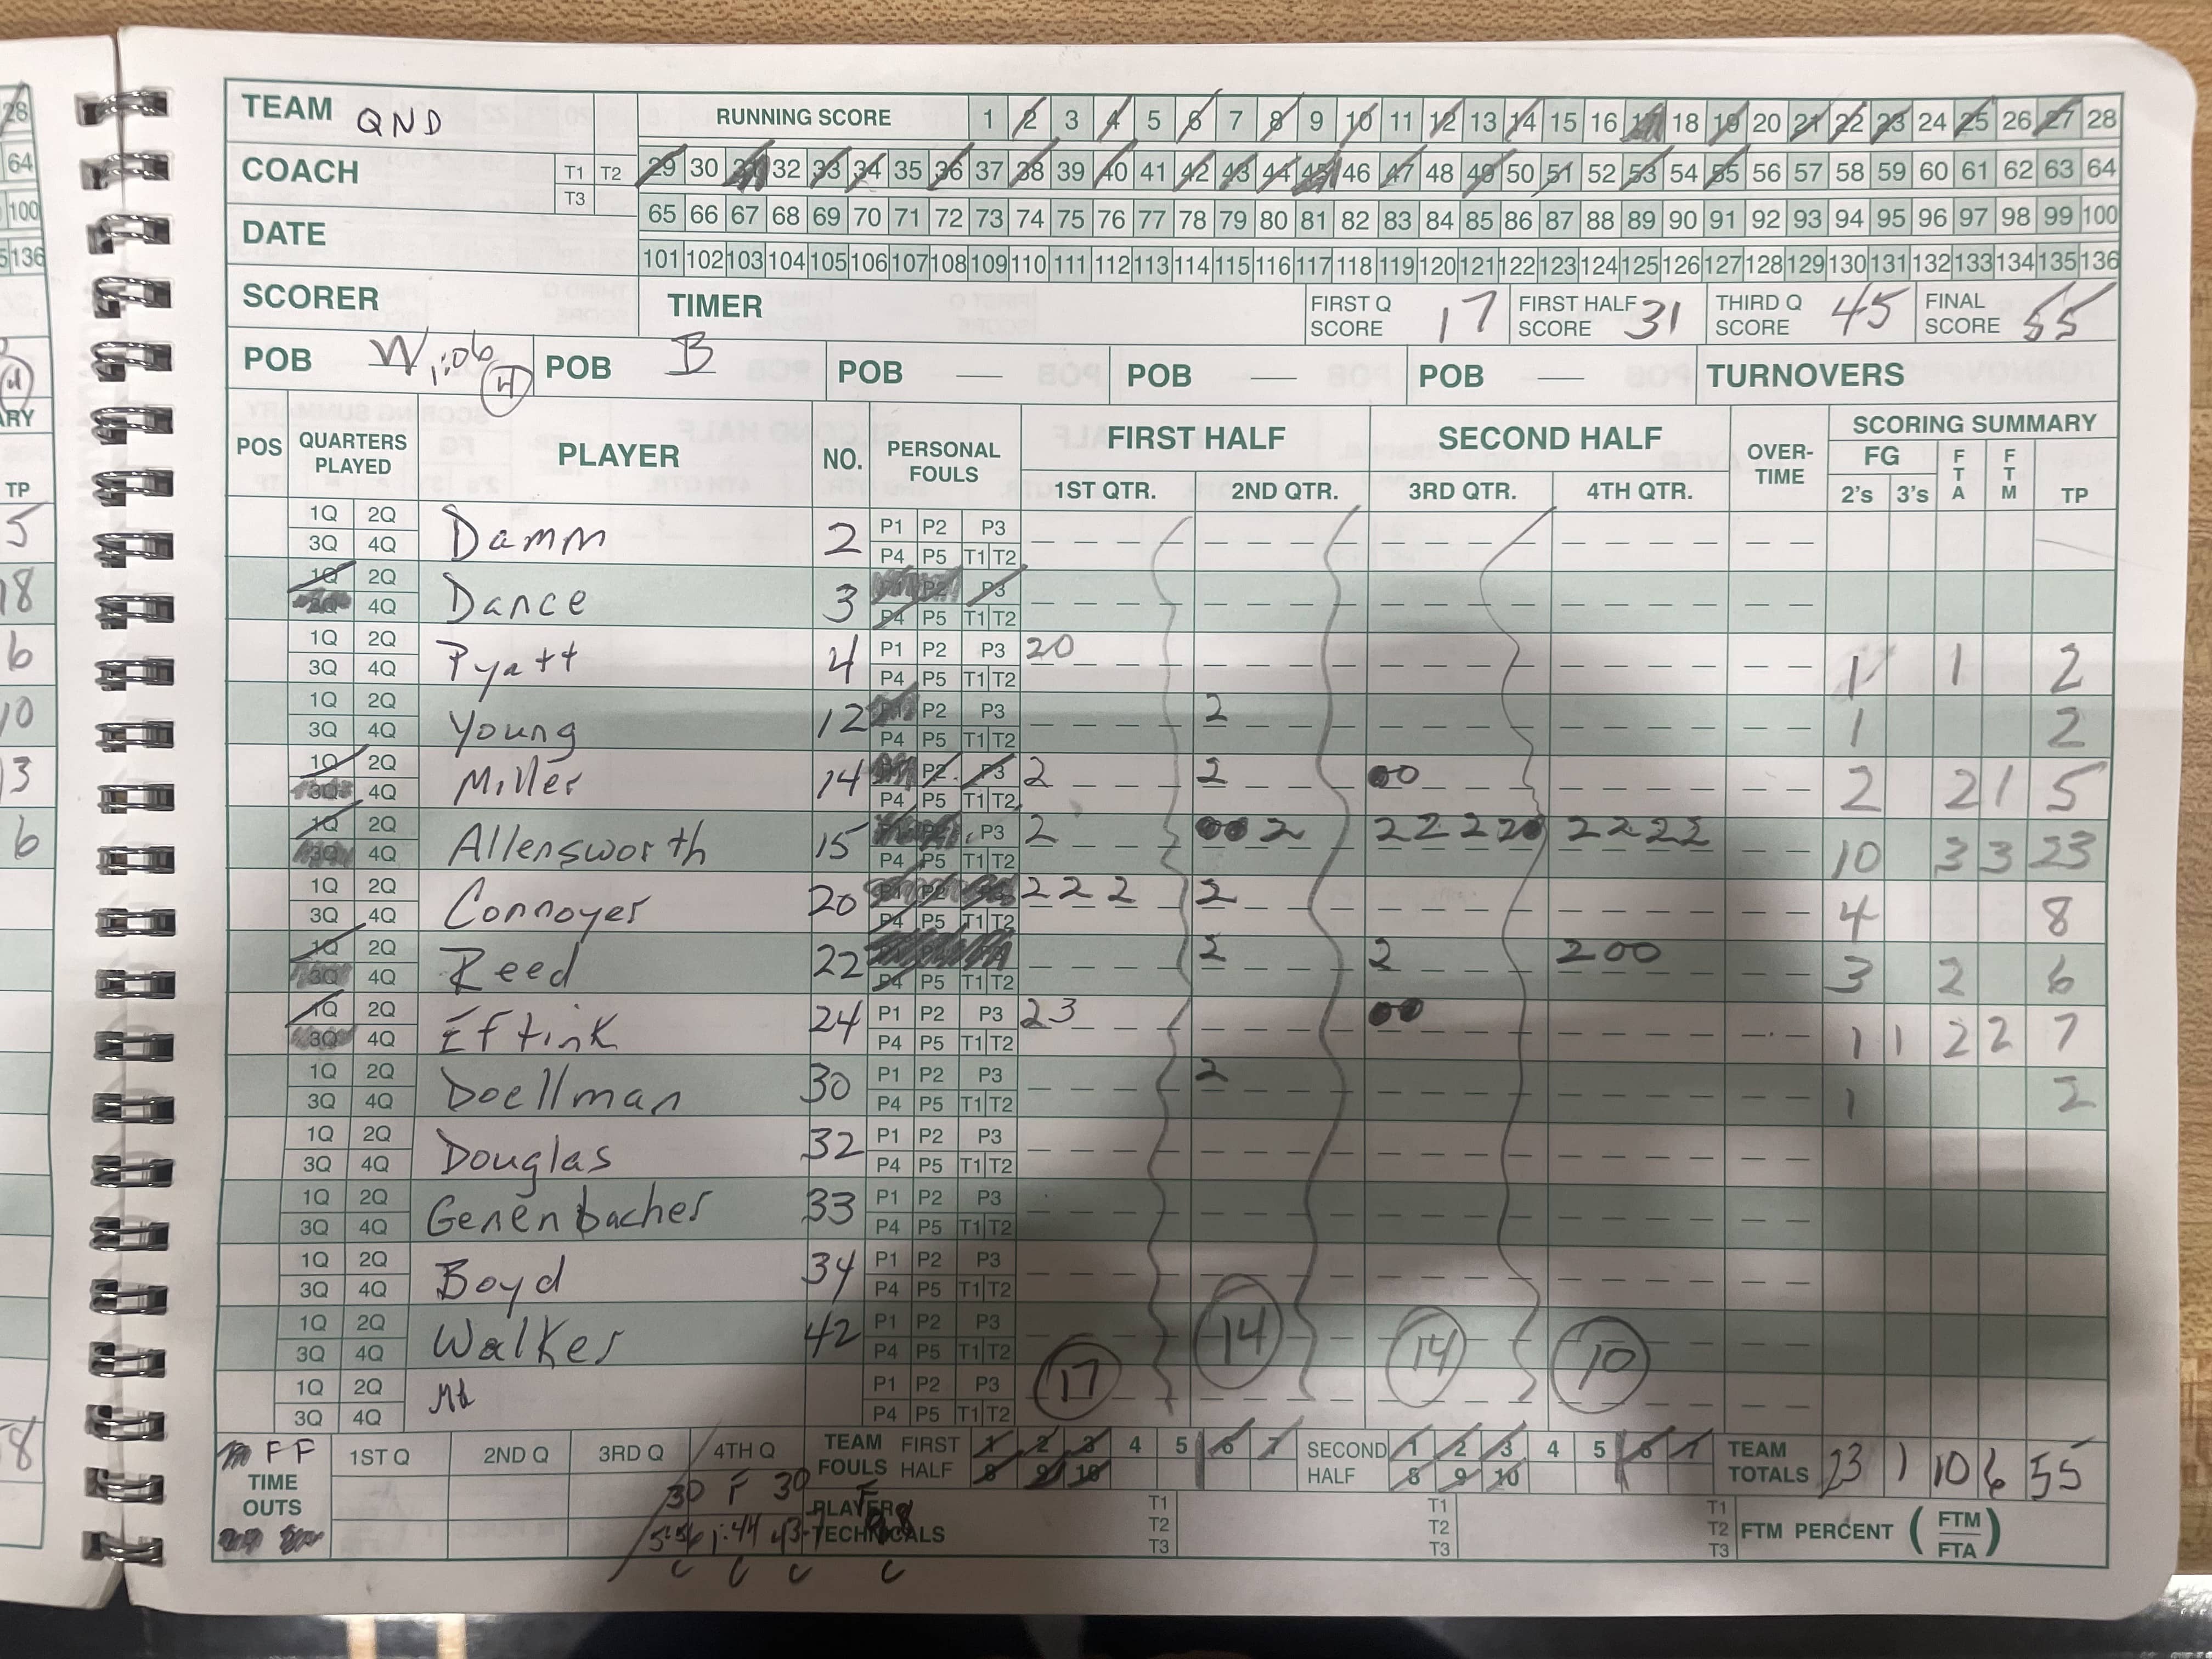 TEAM QND RUNNING SCORE 1 2 3 4 5 6 7 8 9 10 11 12 13 14 15 16 17 18 19 20 21 22 23 24 25 26 27 28
28
COACH T1 T2 29 30 31 32 33 34 35 36 37 38 39 40 41 42 43 44 45 46 47 48 49 50 51 52 53 54 55 56 57 58 59 60 61 62 63 64
64
T3
100
DATE 65 66 67 68 69 70 71 72 73 74 75 76 77 78 79 80 81 82 83 84 85 86 87 88 89 90 91 92 93 94 95 96 97 98 99 100
5 136
101 102 103 104 105 106 107 108 109 110 111 112 113 114 115 116 117 118 119 120 121 122 123 124 125 126 127 128 129 130 131 132 133 134 135 136
SCORER TIMER FIRST Q SCORE 17 FIRST HALF SCORE 31 THIRD Q SCORE 45 FINAL SCORE 55
POB W 1:06 4 POB B POB — POB — POB — TURNOVERS
POS QUARTERS PLAYED PLAYER NO. PERSONAL FOULS FIRST HALF SECOND HALF OVER-TIME SCORING SUMMARY
1ST QTR. 2ND QTR. 3RD QTR. 4TH QTR. FG 2's 3's FTA FTM TP
ARY
TP
1Q 2Q Damm 2 P1 P2 P3
3Q 4Q P4 P5 T1 T2
5
1Q 2Q Dance 3 P1 P2 P3
3Q 4Q P4 P5 T1 T2
18
1Q 2Q Pyatt 4 P1 P2 P3 20 1 1 2
3Q 4Q P4 P5 T1 T2
6
1Q 2Q Young 12 P1 P2 P3 2 1 2
3Q 4Q P4 P5 T1 T2
10
1Q 2Q Miller 14 P1 P2 P3 2 2 00 2 2 1 5
3Q 4Q P4 P5 T1 T2
3
1Q 2Q Allensworth 15 P1 P2 P3 2 00 2 2 2 2 2 0 2 2 2 2 10 3 3 23
3Q 4Q P4 P5 T1 T2
6
1Q 2Q Connoyer 20 P1 P2 P3 2 2 2 2 4 8
3Q 4Q P4 P5 T1 T2
1Q 2Q Reed 22 P1 P2 P3 2 2 2 0 0 3 2 6
3Q 4Q P4 P5 T1 T2
1Q 2Q Eftink 24 P1 P2 P3 2 3 00 1 1 2 2 7
3Q 4Q P4 P5 T1 T2
1Q 2Q Doellman 30 P1 P2 P3 2 1 2
3Q 4Q P4 P5 T1 T2
1Q 2Q Douglas 32 P1 P2 P3
3Q 4Q P4 P5 T1 T2
1Q 2Q Genenbacher 33 P1 P2 P3
3Q 4Q P4 P5 T1 T2
1Q 2Q Boyd 34 P1 P2 P3
3Q 4Q P4 P5 T1 T2
1Q 2Q Walker 42 P1 P2 P3 17 14 14 10
3Q 4Q P4 P5 T1 T2
1Q 2Q P1 P2 P3
3Q 4Q P4 P5 T1 T2
8
F F TIME OUTS 1ST Q 2ND Q 3RD Q 4TH Q TEAM FOULS FIRST HALF 1 2 3 4 5 6 7 SECOND HALF 1 2 3 4 5 6 7 TEAM TOTALS 23 1 10 6 55
8 9 10 8 9 10
30 F 30 F
5:56 1:44 PLAYER TECHNICALS T1 T2 T3 T1 T2 T3 T1 T2 T3 FTM PERCENT (FTM FTA)
C C C C